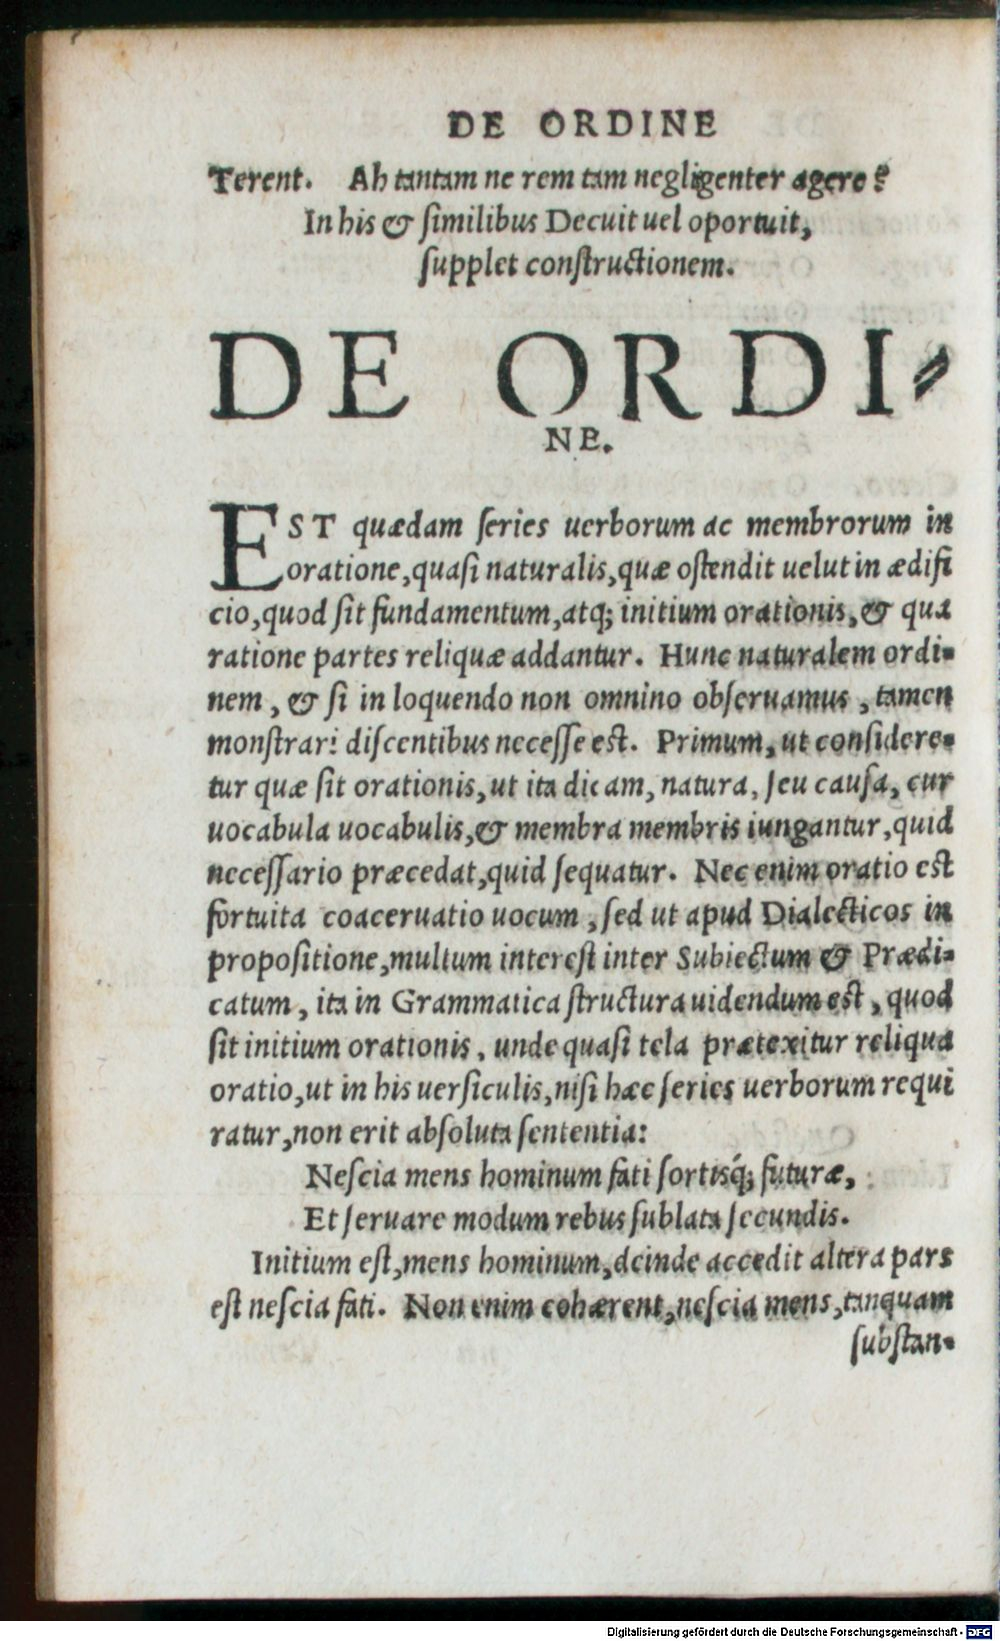 DE ORDINE
Terent. Ah tantam ne rem tam negligenter agere?
In his & ſimilibus Decuit uel oportuit,
ſupplet conſtructionem.
DE ORDI⸗
NE.
EST quædam ſeries uerborum ac membrorum in
oratione,quaſi naturalis,quæ oſtendit uelut in ædifi
cio,quod ſit fundamentum,atq; initium orationis,& qua
ratione partes reliquæ addantur. Hunc naturalem ordi⸗
nem, & ſi in loquendo non omnino obſeruamus, tamen
monſtrari diſcentibus neceſſe est. Primum, ut conſidere⸗
tur quæ ſit orationis, ut ita dicam, natura, ſeu cauſa, cur
uocabula uocabulis,& membra membris iungantur,quid
neceſſario præcedat,quid ſequatur. Nec enim oratio est
fortuita coaceruatio uocum, ſed ut apud Dialecticos in
propoſitione,multum intereſt inter Subiectum & Prædi⸗
catum, ita in Grammatica ſtructura uidendum est, quod
ſit initium orationis, unde quaſi tela prætexitur reliqua
oratio,ut in his uerſiculis,niſi hæc ſeries uerborum requi
ratur,non erit abſoluta ſententia:
Neſcia mens hominum fati ſortisq́; futuræ,
Et ſeruare modum rebus ſublata ſecundis.
Initium eſt,mens hominum,deinde accedit altera pars
eſt neſcia fati. Non enim cohærent,neſcia mens,tanquam
ſubſtan⸗
Digitalisierung gefördert durch die Deutsche Forschungsgemeinschaft - DFG